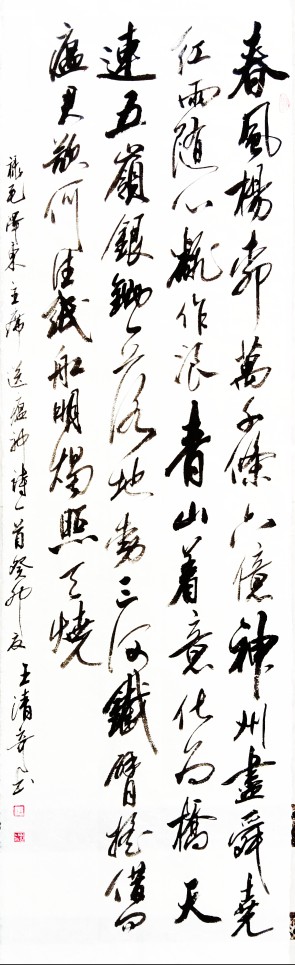 春風楊柳萬千條六億神州盡舜堯
紅雨隨心翻作浪青山着意化為橋天
連五嶺銀鋤落地動三河鐵臂搖借问
瘟君欲何往紙船明燭照天燒
录毛澤東主席送瘟神詩一首癸卯夏王清奇书